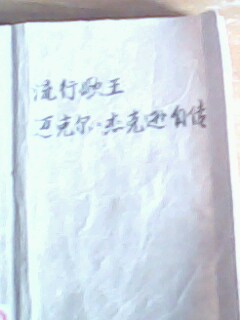 流行歌王
迈克尔·杰克逊自传